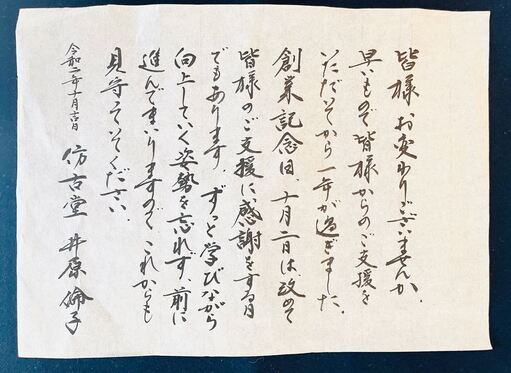 皆様 お変わりございませんか。
早いもので皆様からのご支援を
いただいてから一年が過ぎました。
創業記念日、十月二日は、改めて
皆様のご支援に感謝をする日
でもあります。ずっと学びながら
向上していく姿勢を忘れず、前に
進んでまいりますので、これからも
見守っていてください。
令和二年十月吉日
仿古堂 井原倫子